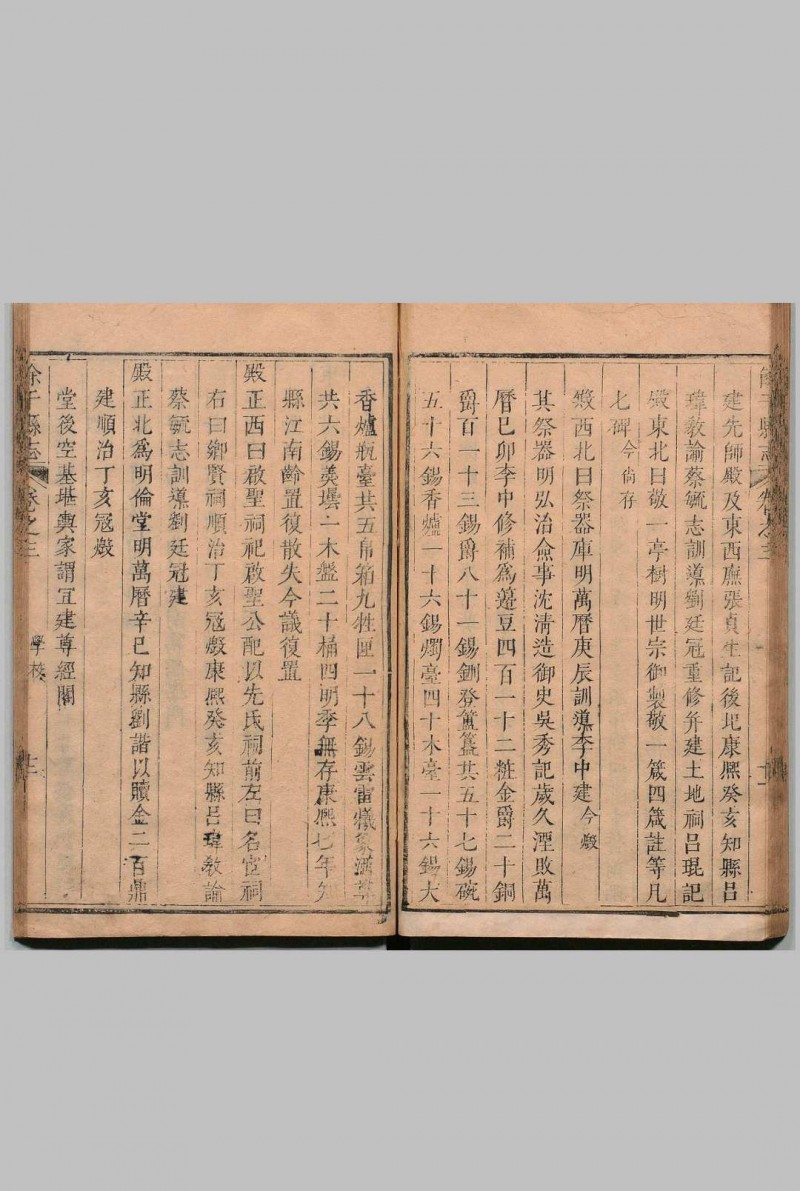 建先師殿及東西廡張貞生記後圮康熙癸亥知縣呂
瑋教諭蔡毓志訓導劉廷冠重修并建土地祠呂琨記
殿東北曰敬一亭樹明世宗御製敬一箴四箴註等凡
七碑今尚存
殿西北曰祭器庫明萬曆庚辰訓導李中建今燬
其祭器明弘治僉事沈清造御史吳秀記歲久湮敗萬
曆巳卯李中修補為籩豆四百一十二粧金爵二十銅
爵百一十三錫爵八十一錫鉶登簠簋共五十七錫碗
五十六錫香爐一十六錫燭臺四十木臺一十六錫大
香爐瓶臺共五帛箱九牲匣一十八錫雲雷犧象
共六錫羹壜一木盤二十桶四明季無存康熙七年知
縣江南齡置復散失今議復置
殿正西曰啟聖祠祀啟聖公配以先氏祠前左曰名宦祠
右曰鄉賢祠順治丁亥冦燬康熙癸亥知縣呂瑋教諭
蔡毓志訓導劉廷冠建
殿正北為明倫堂明萬曆辛巳知縣劉諧以贖金二百鼎
建順治丁亥冦燬
堂後空基堪輿家謂宜建尊經閣
餘干縣志
卷之三
學校